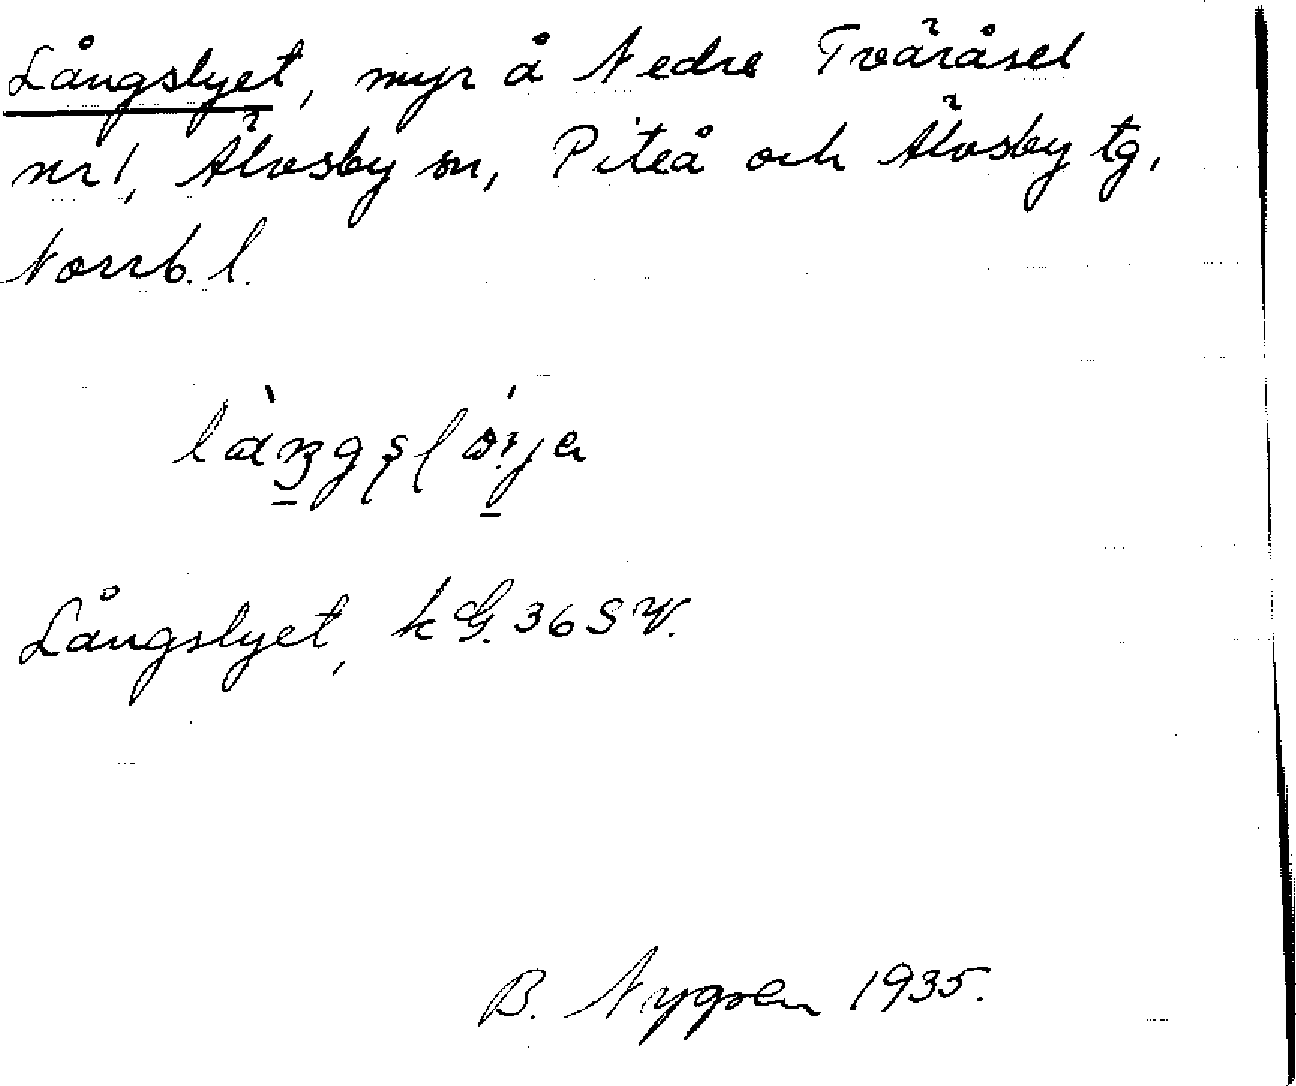 Långslyet, myr å Nedre Tväråsel
nr 1, Älvsby sn, Piteå och Älvsby tg,
Norrb. l.
Långslyet, k G. 36 S V.
B. Nygren 1935.